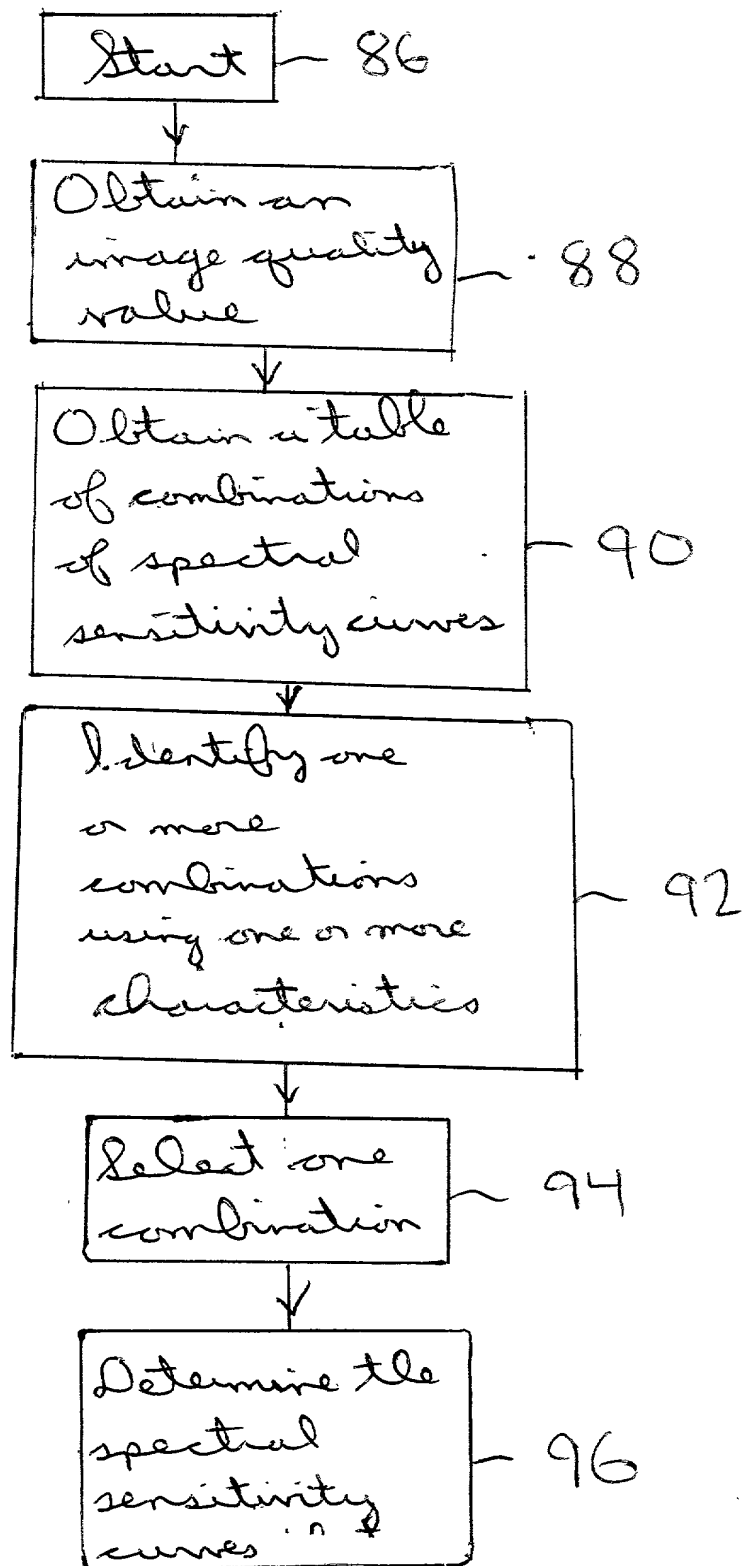 Start
86
Obtain an
image quality
value
88
Obtain a table
of combinations
of spectral
sensitivity curves
90
Identify one
or more
combinations
using one or more
characteristics
92
Select one
combination
94
Determine the
spectral
sensitivity
curves
96